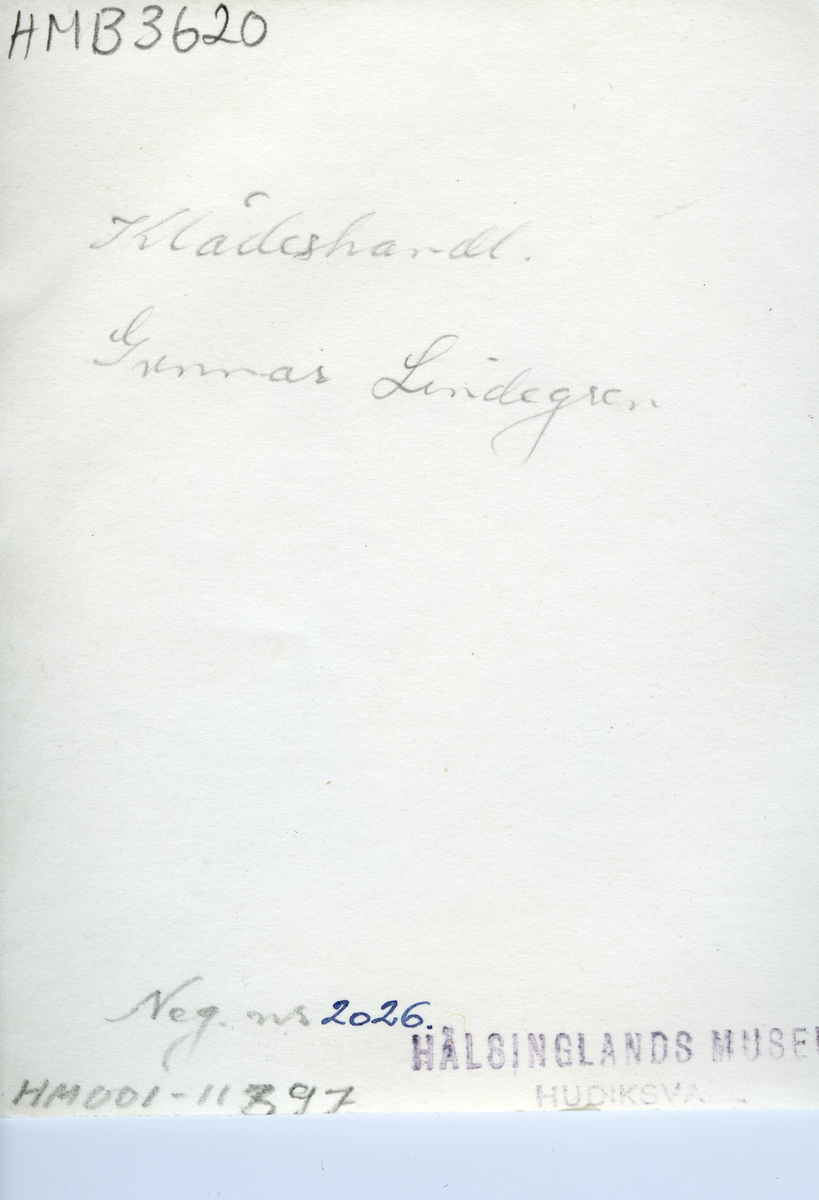 HMB3620
Klädeshandl.
Gunnar Lindegren
Neg. nr 2026.
HÄLSINGLANDS MUSEU
HUDIKSVA L
HM001-11397